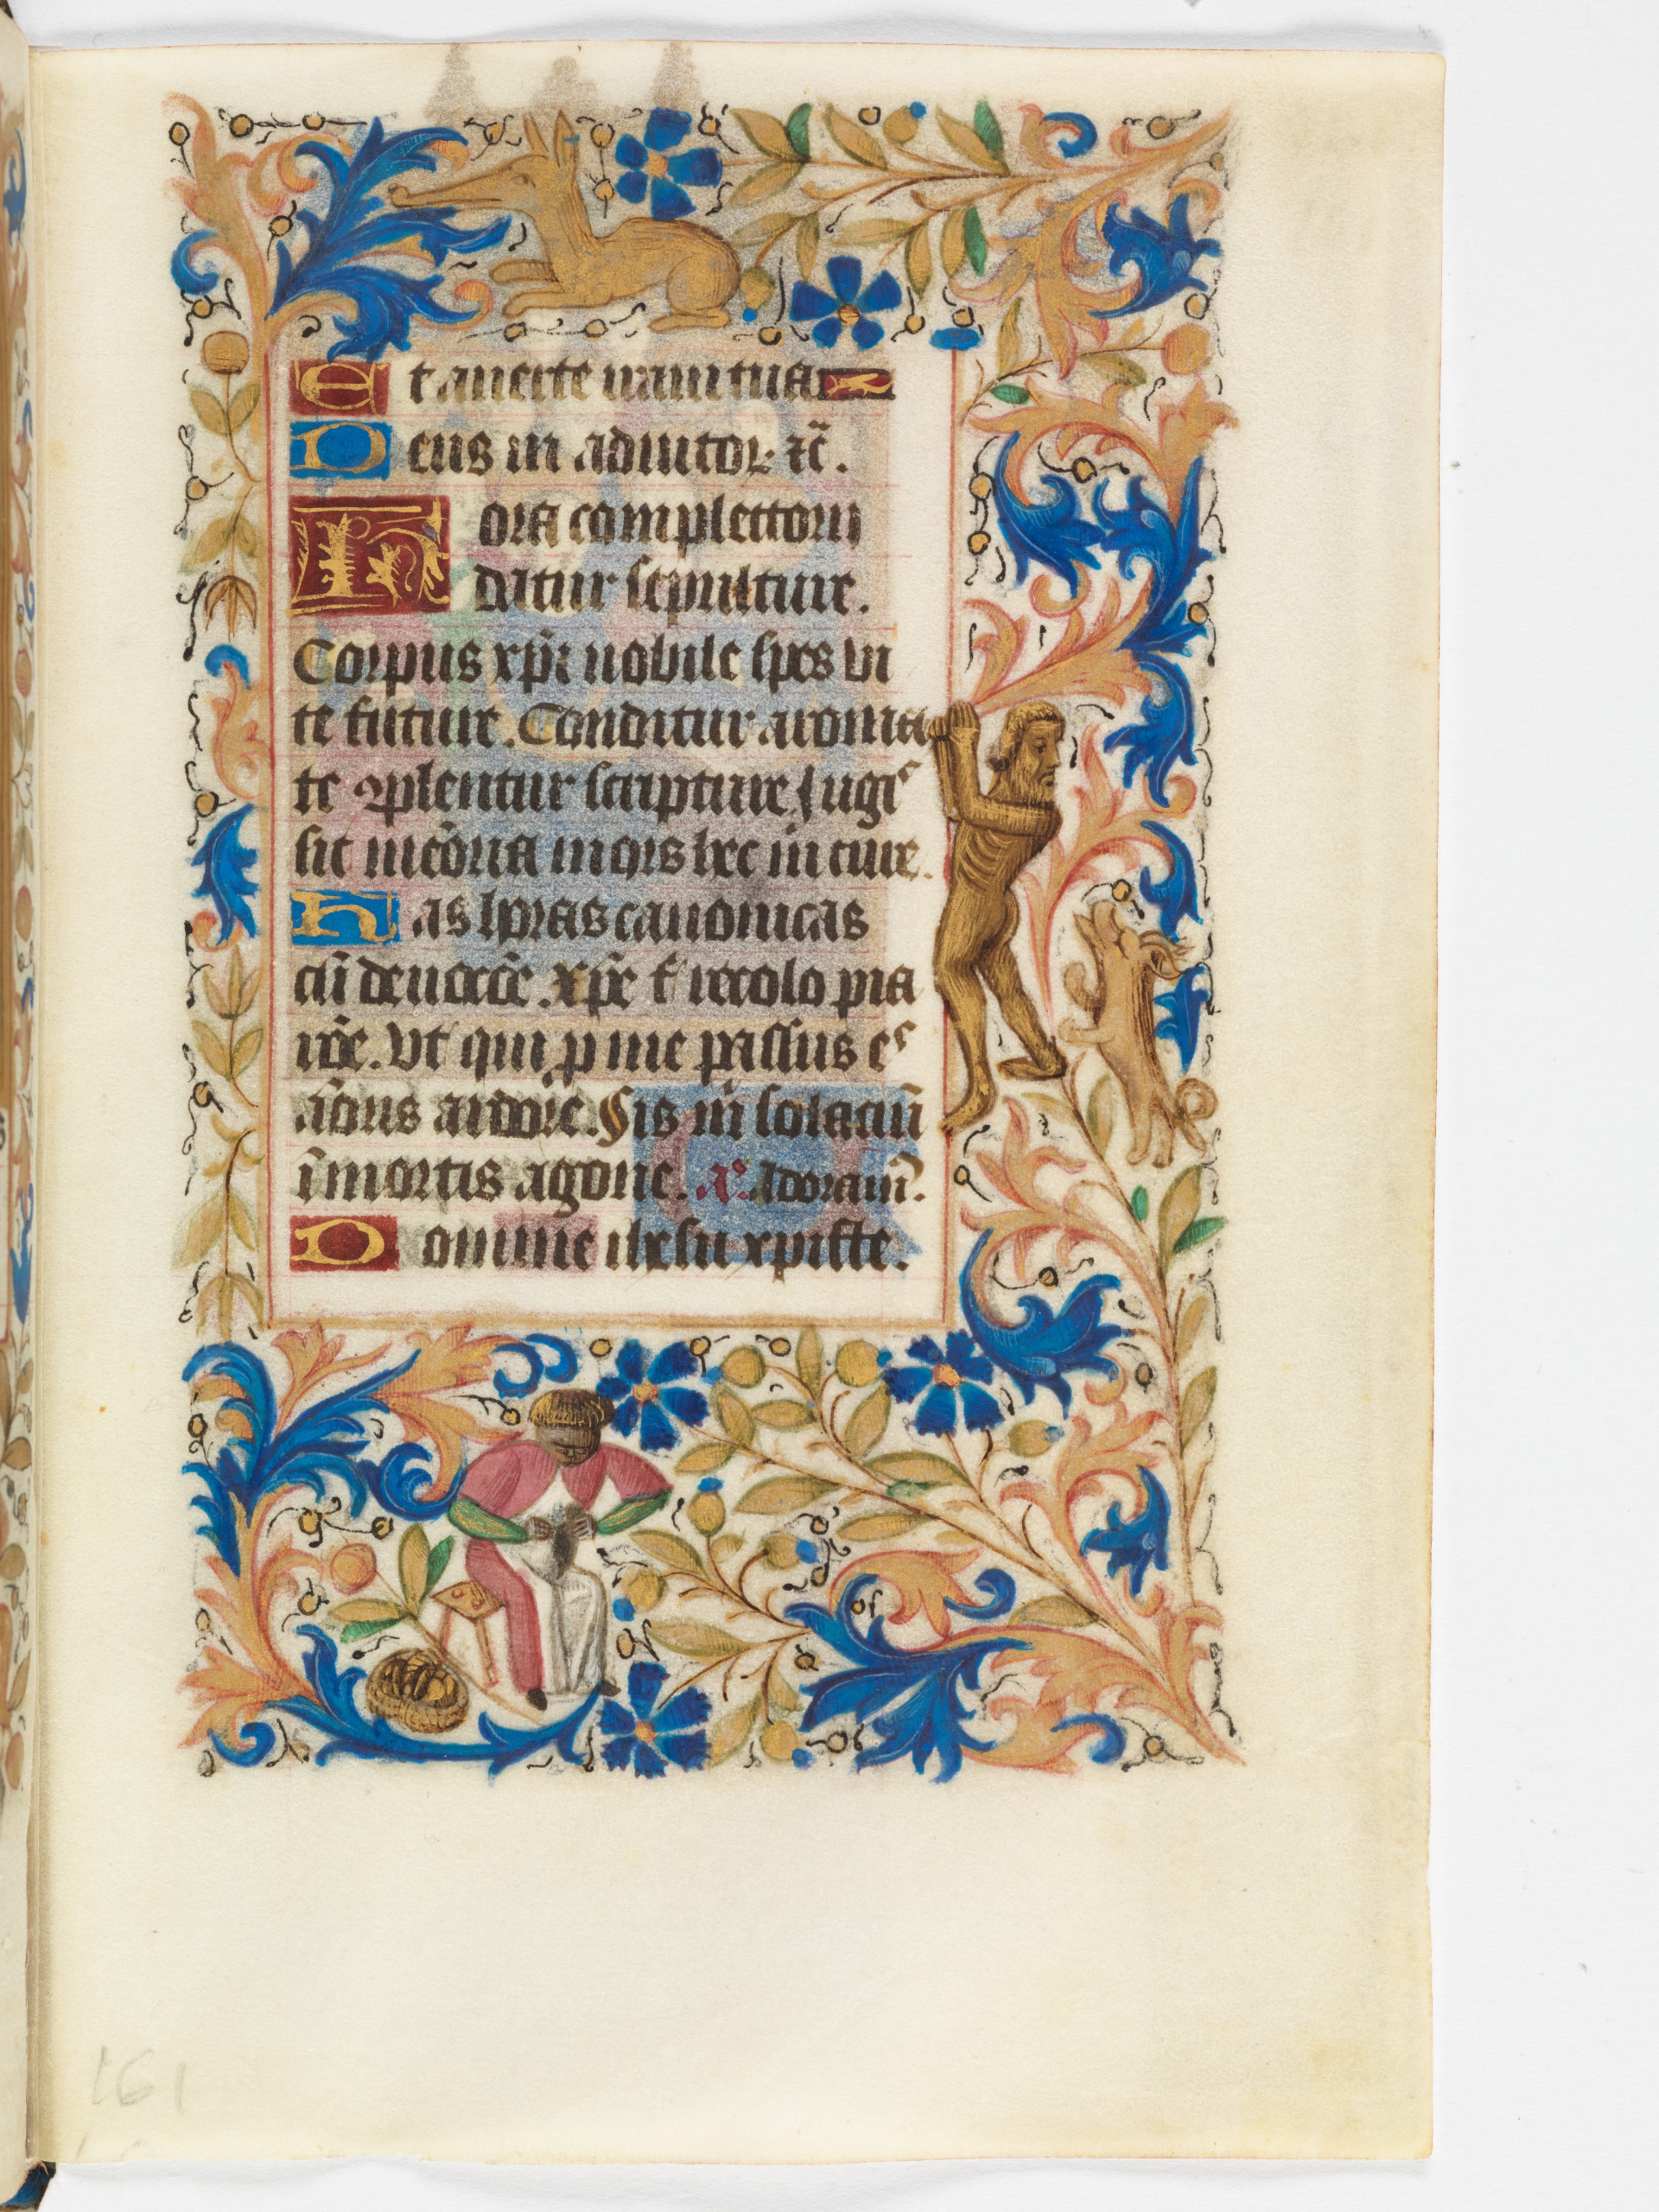 Et auerte iram tuā
Deus in adiutor. ⁊c̄.
Hora completorii
datur sepulture.
Corpus xp̄i nobile spes vi
te future. Conditur aroma
te ꝯplentur scripture Iugis
sit meōria mors hec in cure.
Has horas canonicas
cū deuocōe. xp̄e t' recolo pia
rōe. Vt qui p me passus es
aōris ardore. Sis m̄ solaciū
ī mortis agone. v. Adoram̄.
Domine ihesu xpiste.
161